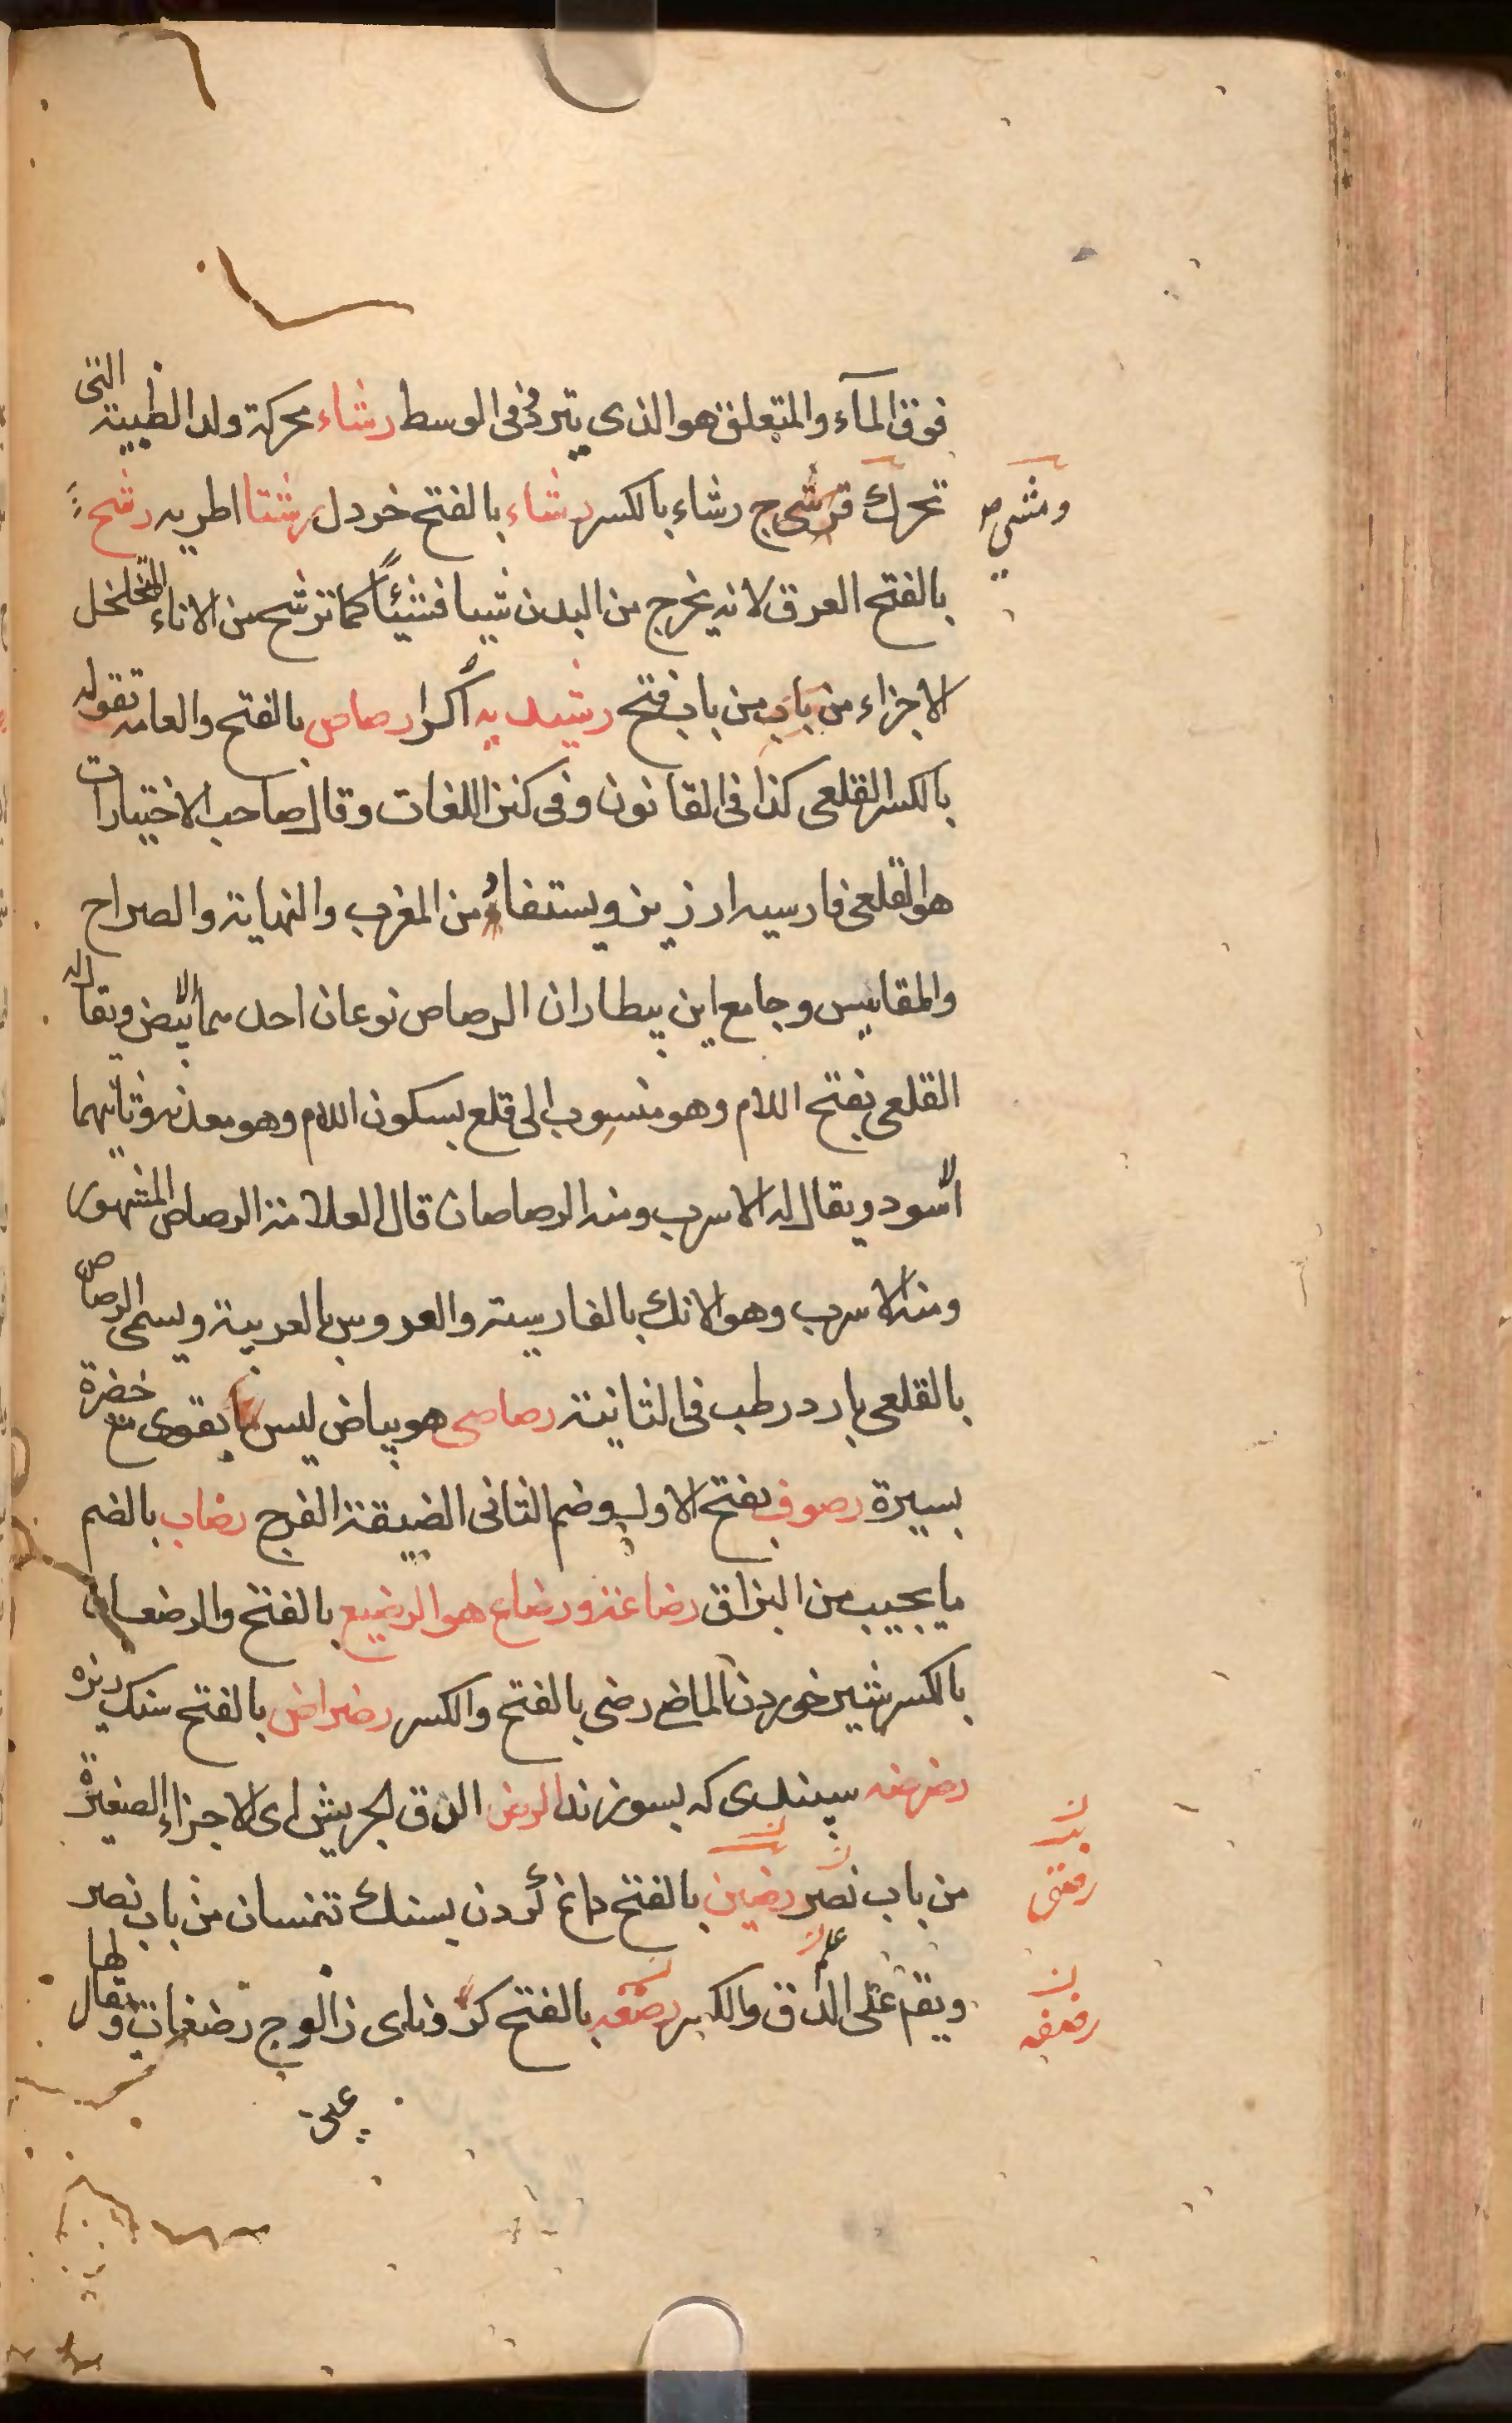 فوق الماء والمتعلق هو الذی یتر فی الوسط رشاء محرکة ولد الظبیة التی
تحرک رشاء بالکسر رشاء بالفتح خردل رشتا اطریه رشح
ومشی
بالفتح العرق لانه یخرج من البدن شیا فشیئاً کما ترشح من الاناء المتخلخل
الاجزاء من باب من باب فتح رشیدیه اکرا رصاص بالفتح والعامه تقوله
بالکسر القلعی کذا فی القانون وفی کنز اللغات وقال صاحب الاختیارات
هو القلعی فارسیه ارزیز ویستفاد من المغرب والنهایة والصراح
والمقاییس وجامع ابن بیطار ان الرصاص نوعان احدهما الابیض ویقال له
القلعی بفتح اللام وهو منسوب الی قلع بسکون اللام وهو معدنه وثانیهما
الاسود ویقال له الاسرب ومنه الرصاصان قال العلامة الرصاص المشهور
ومنه الاسرب وهو الانک بالفارسیة والعروس بالعربیة ویسمی الرصاص
بالقلعی بارد رطب فی الثانیة رصاصی هو بیاض لیس بقوی مع خضرة
یسیرة رصوف بفتح الاول وضم الثانی الضیقة الفرج رضاب بالضم
ما یجیب من البزاق رضاعة ورضاع هو الرضیع بالفتح والرضعان
بالکسر شیر خوردن الماضی رضی بالفتح والکسر رضراض بالفتح سنک ریزه
رضرضه سپندی که بسوزند الرض الدق الجریش ای الاجزاء الصغیرة
من باب نصر رضین بالفتح داغ کردن بسنک تنمسان من باب نصر
ویقم علی الدق والکسر رضفه بالفتح کرد زالوج رضفات ویقال لها
رضفه
عین